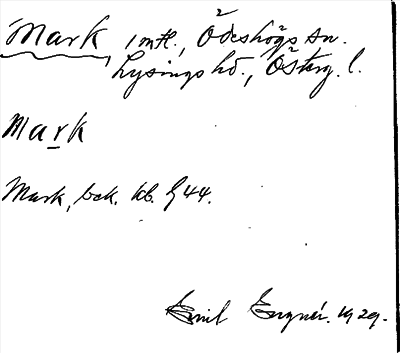 Mark, 1 mtl., Ödeshögs sn.
Lysings hd., Österg. l.
Mark
Mark, bek. kb. § 44.
Emil Eugnér. 1929.